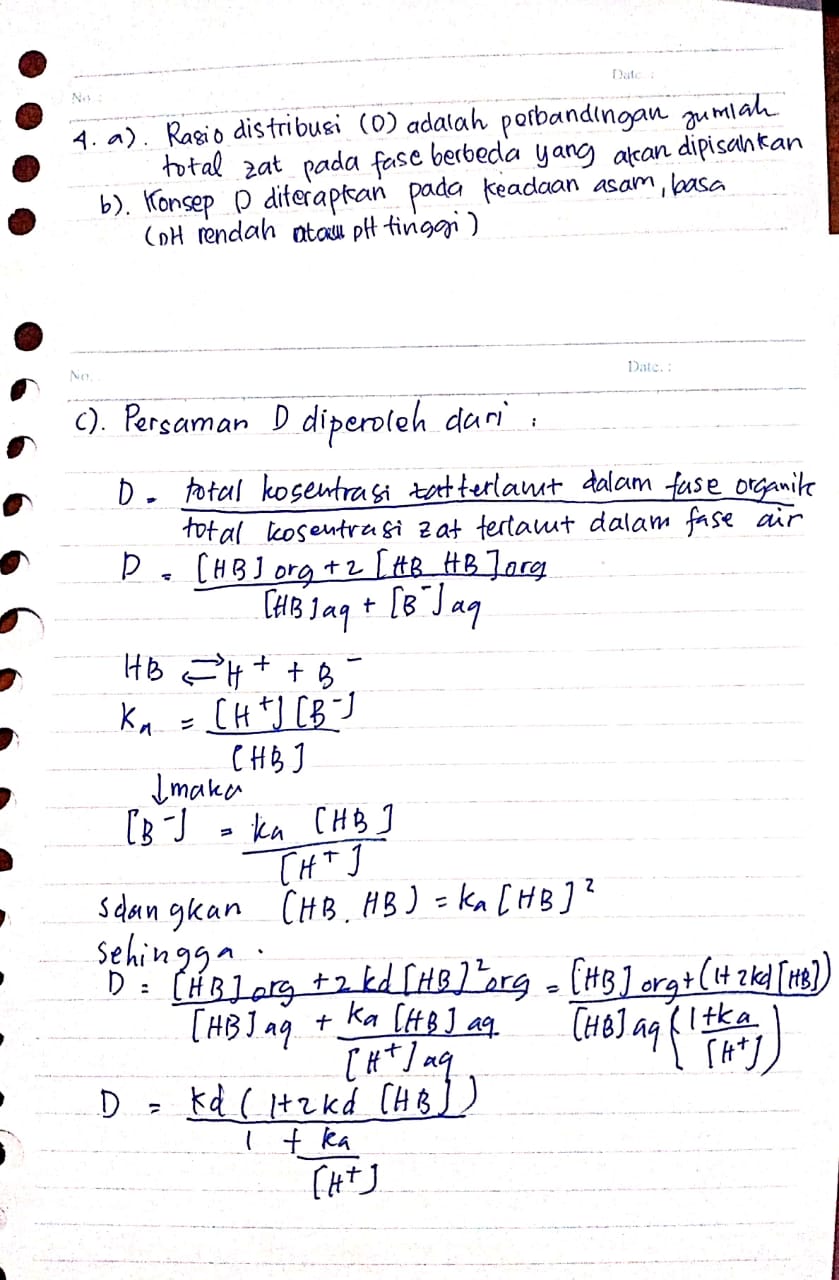 No :
Date :
4. a). Rasio distribusi (D) adalah porbandingan jumlah
total zat pada fase berbeda yang akan dipisahkan
b). Konsep D diterapkan pada keadaan asam, basa
(pH rendah atau pH tinggi)
No.
Date. :
c). Persaman D diperoleh dari :
D = total kosentrasi zat terlarut dalam fase organik
total kosentrasi zat terlarut dalam fase air
D = [HB] org + 2 [HB HB] org
[HB] aq + [B⁻] aq
HB ⇌ H⁺ + B⁻
Ka = [H⁺] [B⁻]
[HB]
↓ maka
[B⁻] = ka [HB]
[H⁺]
sdangkan (HB. HB) = ka [HB]²
sehingga .
D = [HB] org + 2 kd [HB]² org = [HB] org + (1+ 2kd [HB])
[HB] aq + ka [HB] aq [HB] aq (1+ka
[H⁺] aq [H⁺])
D = kd (1+2kd [HB])
1 + ka
[H⁺]